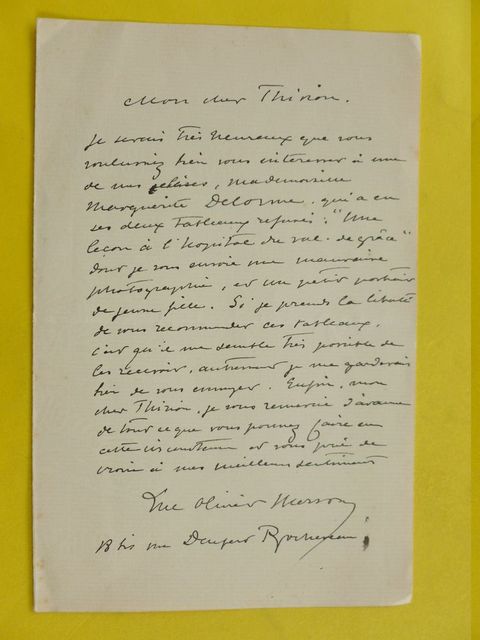 Mon cher Thirion.
Je serais très heureux que vous
voulussiez bien vous intéresser à une
de mes élèves, Mademoiselle
Marguerite Delorme, qui a eu
ses deux tableaux refusés : "Une
leçon à l'hopital du val-de-grâce"
dont je vous envoie une mauvaise
photographie, et un petit portrait
de jeune fille. Si je prends la liberté
de vous recommander ces tableaux,
c'est qu'il me semble très possible de
les recevoir, autrement je me garderais
bien de vous ennuyer. Enfin, mon
cher Thirion, je vous remercie d'avance
de tout ce que vous pourrez faire en
cette circonstance et vous prie de
croire à mes meilleurs sentiments
Luc Olivier Merson
18 bis rue Denfert Rochereau